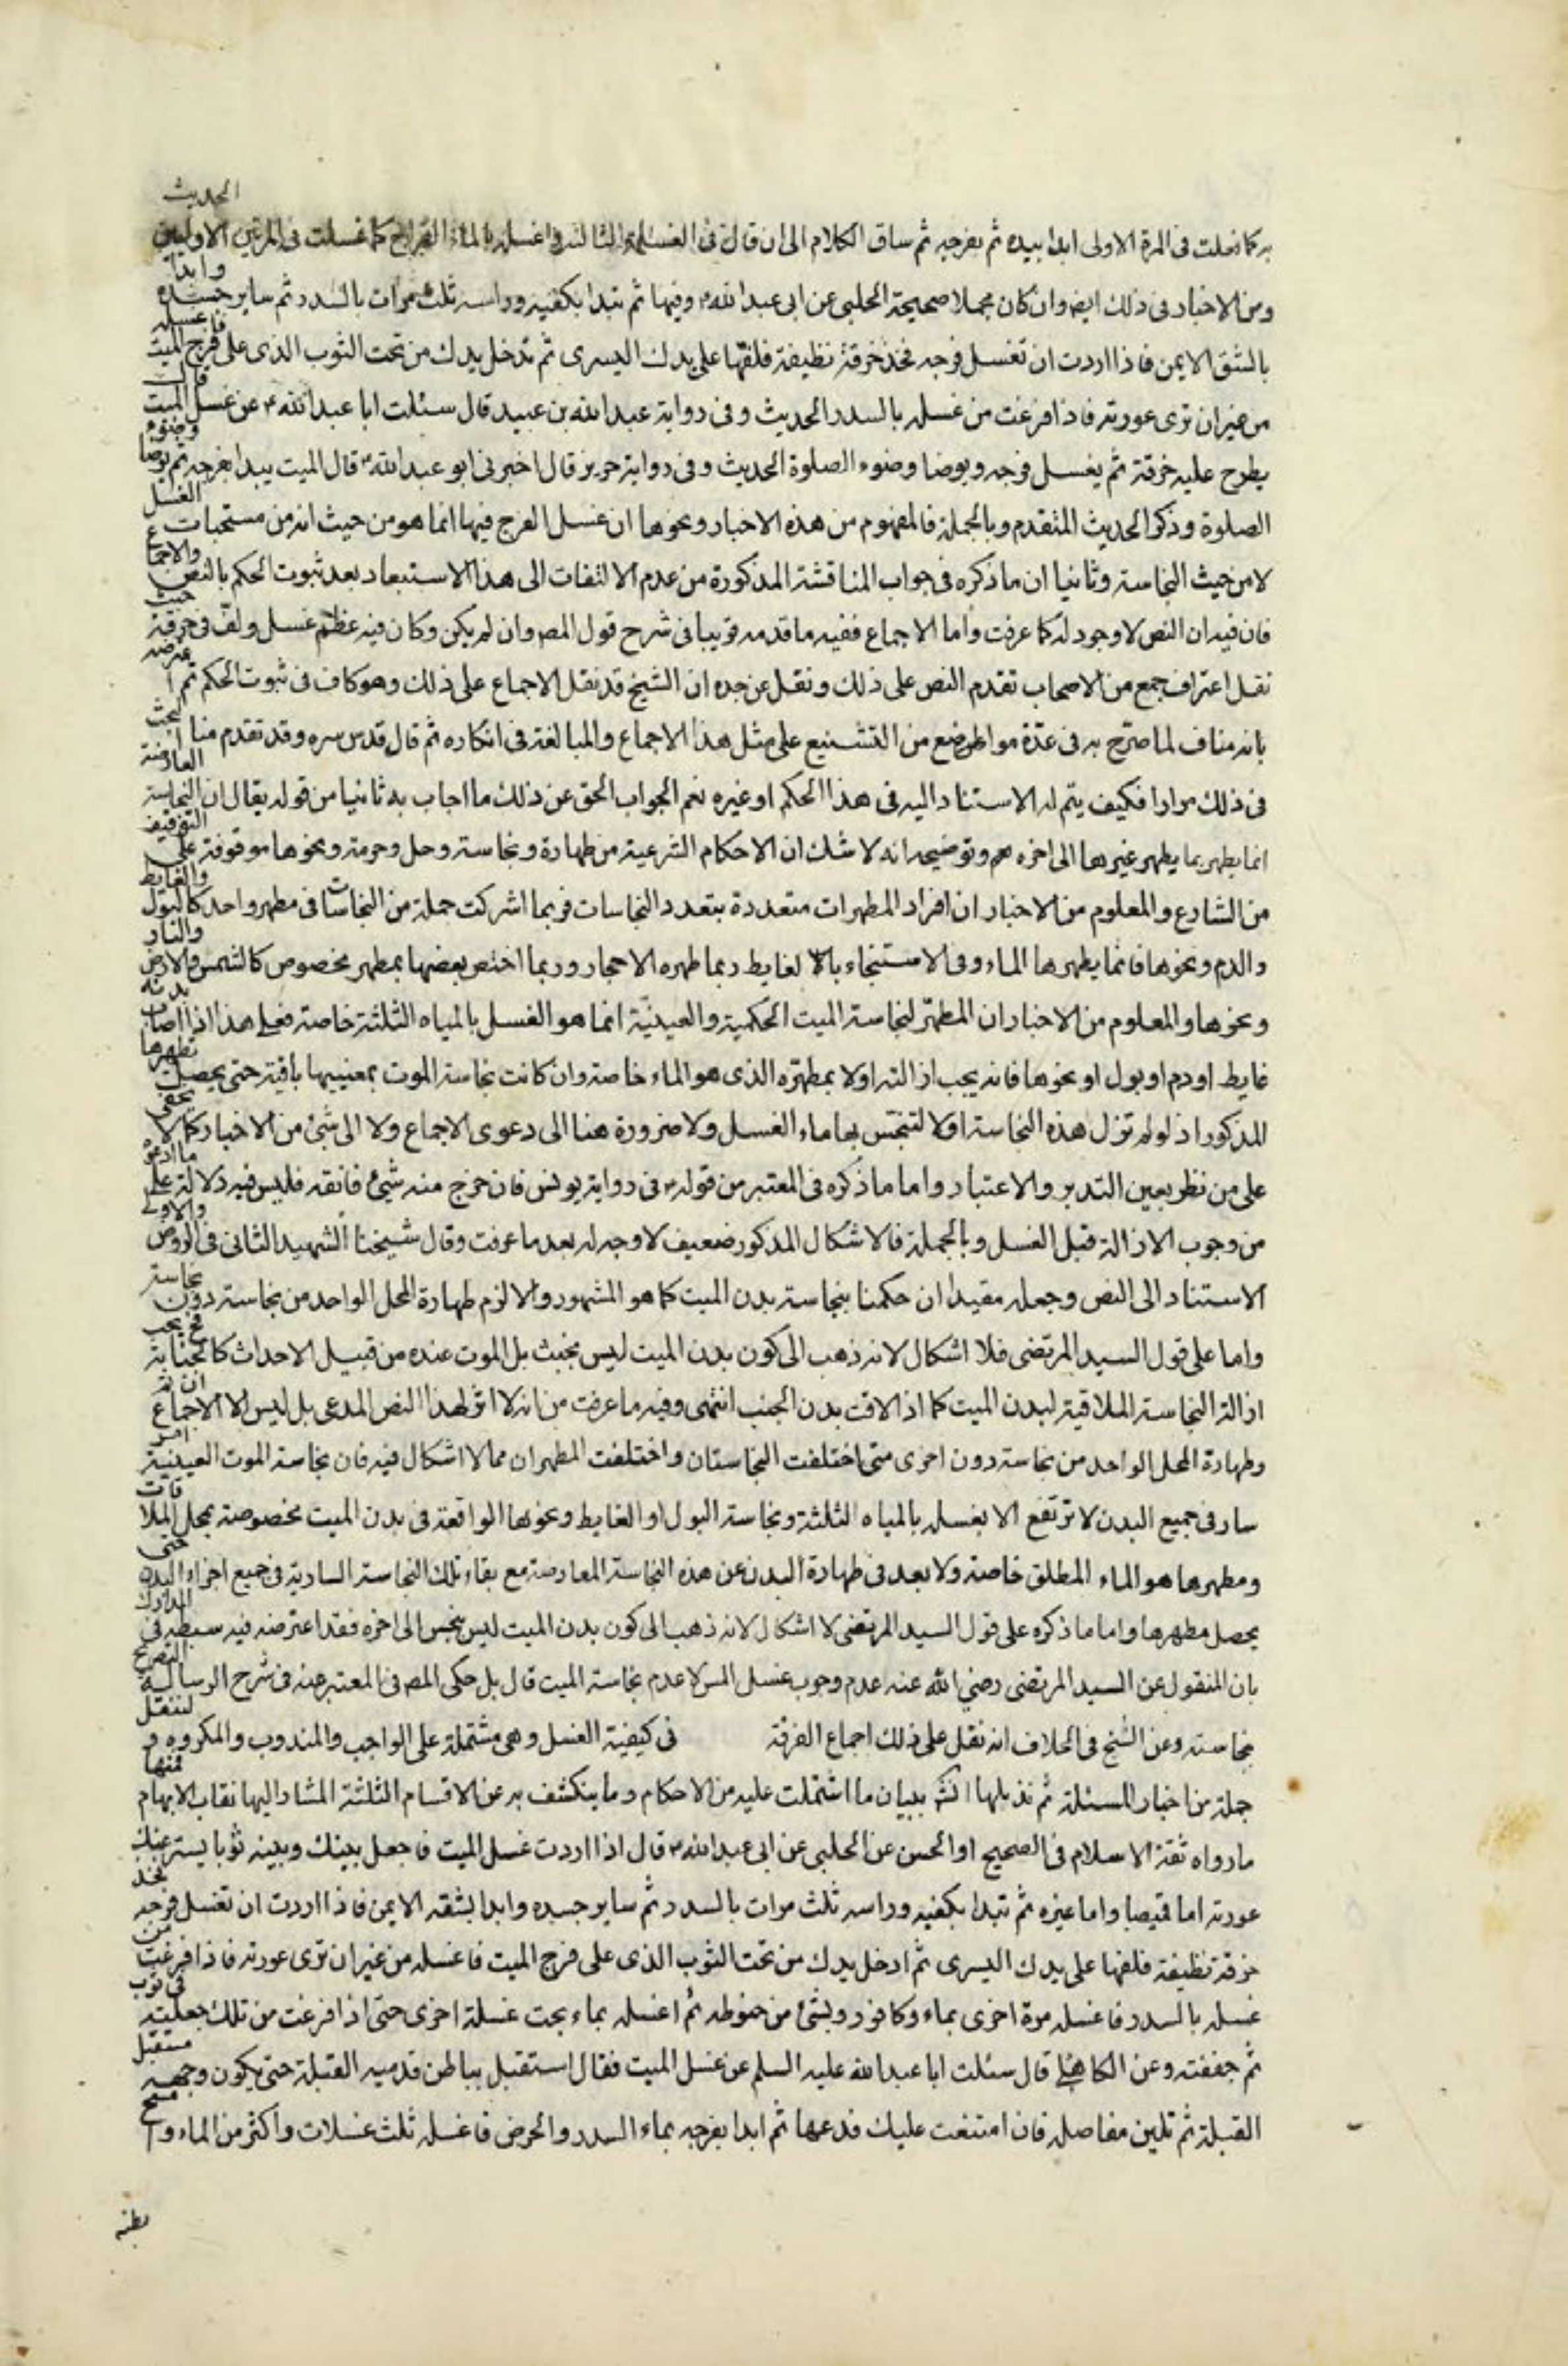 به كما فعلت فى المرة الاولى ابدا بيده ثم بفرجه ثم ساق الكلام الى ان قال فى الغسلة الثالثة واغسله بالماء القراح كما غسلت فى المرتين الاوليين الحديث
ومن الاخبار فى ذلك ايضا وان كان مجملا صحيحة الحلبى عن ابى عبد الله ع وفيها ثم تبدا بكفيه وراسه ثلث مرات بالسدر ثم ساير جسده وابدا
بالشق الايمن فاذا اردت ان تغسل فرجه فخذ خرقة نظيفة فلفها على يدك اليسرى ثم تدخل يدك من تحت الثوب الذى على فرج الميت فاغسله
من غير ان ترى عورته فاذا فرغت من غسله بالسدر الحديث وفى رواية عبد الله بن عبيد قال سئلت ابا عبد الله ع عن غسل الميت قال
يطرح عليه خرقة ثم يغسل فرجه ويوضا وضوء الصلوة الحديث وفى رواية حريز قال اخبرنى ابو عبد الله ع قال الميت يبدا بفرجه ثم يوضا وضوء
الصلوة وذكر الحديث المتقدم وبالجملة فالمفهوم من هذه الاخبار ونحوها ان غسل الفرج فيها انما هو من حيث انه من مستحبات الغسل
لا من حيث النجاسة وثانيا ان ما ذكره فى جواب المناقشة المذكورة من عدم الالتفات الى هذا الاستبعاد بعد ثبوت الحكم بالنص والاجماع
فان فيه ان النص لا وجود له كما عرفت واما الاجماع ففيه ما قدمه قريبا فى شرح قول المص وان لم يكن وكان فيه عظم غسل ولف فى خرقة حيث
نقل اعتراف جمع من الاصحاب تقدم النص على ذلك ونقل عن جده ان الشيخ قد نقل الاجماع على ذلك وهو كاف فى ثبوت الحكم ثم اعترضه
بانه مناف لما صرح به فى عدة مواضع من التشنيع على مثل هذا الاجماع والمبالغة فى انكاره ثم قال قدس سره وقد تقدم منا البحث
فى ذلك مرارا فكيف يتم له الاستناد اليه فى هذا الحكم او غيره نعم الجواب الحق عن ذلك ما اجاب به ثانيا من قوله يقال ان النجاسة العارضة
انما يطهر بما يطهر غيرها الى اخره وتوضيحه انه لا شك ان الاحكام الشرعية من طهارة ونجاسة وحل وحرمة ونحوها موقوفة على التوقيف
من الشارع والمعلوم من الاخبار ان افراد المطهرات متعددة بتعدد النجاسات فربما اشركت جملة من النجاسات فى مطهر واحد كالبول والغايط
والدم ونحوها فانما يطهرها الماء وفى الاستنجاء بالغايط ربما طهره الاحجار وربما اختص بعضها بمطهر مخصوص كالشمس والارض والنار
ونحوها والمعلوم من الاخبار ان المطهر لنجاسة الميت الحكمية والعينية انما هو الغسل بالمياه الثلثة خاصة فعلى هذا اذا اصاب بدنه
غايط او دم او بول او نحوها فانه يجب ازالته اولا بمطهره الذى هو الماء خاصة وان كانت نجاسة الموت بمعنييها باقية حتى يحصل تطهرها
المذكور اذ لو لم تزل هذه النجاسة اولا لتنجس بها ماء الغسل ولا ضرورة هنا الى دعوى الاجماع ولا الى شئ من الاخبار كما لا يخفى
على من نظر بعين التدبر والاعتبار واما ما ذكره فى المعتبر من قوله ع فى رواية يونس فان خرج منه شئ فانقه فليس فيه دلالة على ما ادعوه
من وجوب الازالة قبل الغسل وبالجملة فالاشكال المذكور ضعيف لا وجه له بعد ما عرفت وقال شيخنا الشهيد الثانى فى الروض والاولى
الاستناد الى النص وجعله مقيدا ان حكمنا بنجاسة بدن الميت كما هو المشهور والا لزم طهارة المحل الواحد من نجاسة دون نجاسة
واما على قول السيد المرتضى فلا اشكال لانه ذهب الى كون بدن الميت ليس بخبث بل الموت عنده من قبيل الاحداث كالجنابة فح يجب
ازالة النجاسة الملاقية لبدن الميت كما اذا لاقت بدن الجنب انتهى وفيه ما عرفت من انه لا اثر لهذا النص المدعى بل ليس الا الاجماع ان تم
وطهارة المحل الواحد من نجاسة دون اخرى متى اختلفت النجاستان واختلفت المطهران مما لا اشكال فيه فان نجاسة الموت العينية امر
سار فى جميع البدن لا ترتفع الا بغسله بالمياه الثلثة ونجاسة البول او الغايط ونحوها الواقعة فى بدن الميت مخصوصة بمحل الملاقات
ومطهرها هو الماء المطلق خاصة ولا بعد فى طهارة البدن عن هذه النجاسة المعارضة مع بقاء تلك النجاسة السارية فى جميع اجزاء البدن حتى
يحصل مطهرها واما ما ذكره على قول السيد المرتضى لا اشكال لانه ذهب الى كون بدن الميت ليس بنجس الى اخره فقد اعترضه فيه سبطه فى المدارك
بان المنقول عن السيد المرتضى رضي الله عنه عدم وجوب غسل المس لا عدم نجاسة الميت قال بل حكى المص فى المعتبر عنه فى شرح الرسالة التصريح
بنجاسته وعن الشيخ فى الخلاف انه نقل على ذلك اجماع الفرقة فى كيفية الغسل وهى مشتملة على الواجب والمندوب والمكروه و لننقل
جملة من اخبار المسئلة ثم نذيلها انشا ببيان ما اشتملت عليه من الاحكام وما ينكشف به عن الاقسام الثلثة المشار اليها نقاب الابهام فمنها
ما رواه ثقة الاسلام فى الصحيح او الحسن عن الحلبى عن ابى عبد الله ع قال اذا اردت غسل الميت فاجعل بينك وبينه ثوبا يستر عنك
عورته اما قميصا واما غيره ثم تبدا بكفيه وراسه ثلث مرات بالسدر ثم ساير جسده وابدا بشقه الايمن فاذا اردت ان تغسل فرجه فخذ
خرقة نظيفة فلفها على يدك اليسرى ثم ادخل يدك من تحت الثوب الذى على فرج الميت فاغسله من غير ان ترى عورته فاذا فرغت من
غسله بالسدر فاغسله مرة اخرى بماء وكافور وبشئ من حنوطه ثم اغسله بماء بحت غسلة اخرى حتى اذا فرغت من تلك جعلته فى ثوب
ثم جففته وعن الكاهلى قال سئلت ابا عبد الله عليه السلم عن غسل الميت فقال استقبل بباطن قدميه القبلة حتى يكون وجهه مستقبل
القبلة ثم تلين مفاصله فان امتنعت عليك فدعها ثم ابدا بفرجه بماء السدر والحرض فاغسله ثلث غسلات واكثر من الماء وامسح
بطنه